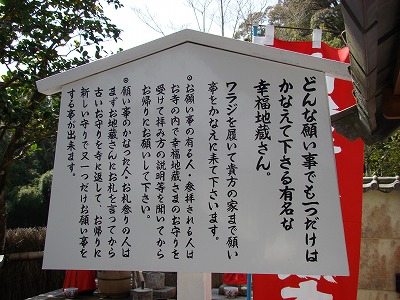 どんな願い事でも一つだけは
かなえて下さる有名な
幸福地蔵さん。
ワラジを履いて貴方の家まで願い
事をかなえに来て下さいます。
◉お願い事の有る人・参拝される人は
お寺の内で幸福地蔵さまのお守りを
受けて拝み方の説明等を聞いてから
お帰りにお願いして下さい。
◉願い事のかなった人・お礼参りの人は
まずお地蔵さんにお礼を言ってから
古いお守りを寺に返して、お帰りに
新しい守りで又一つだけお願い事を
する事が出来ます。